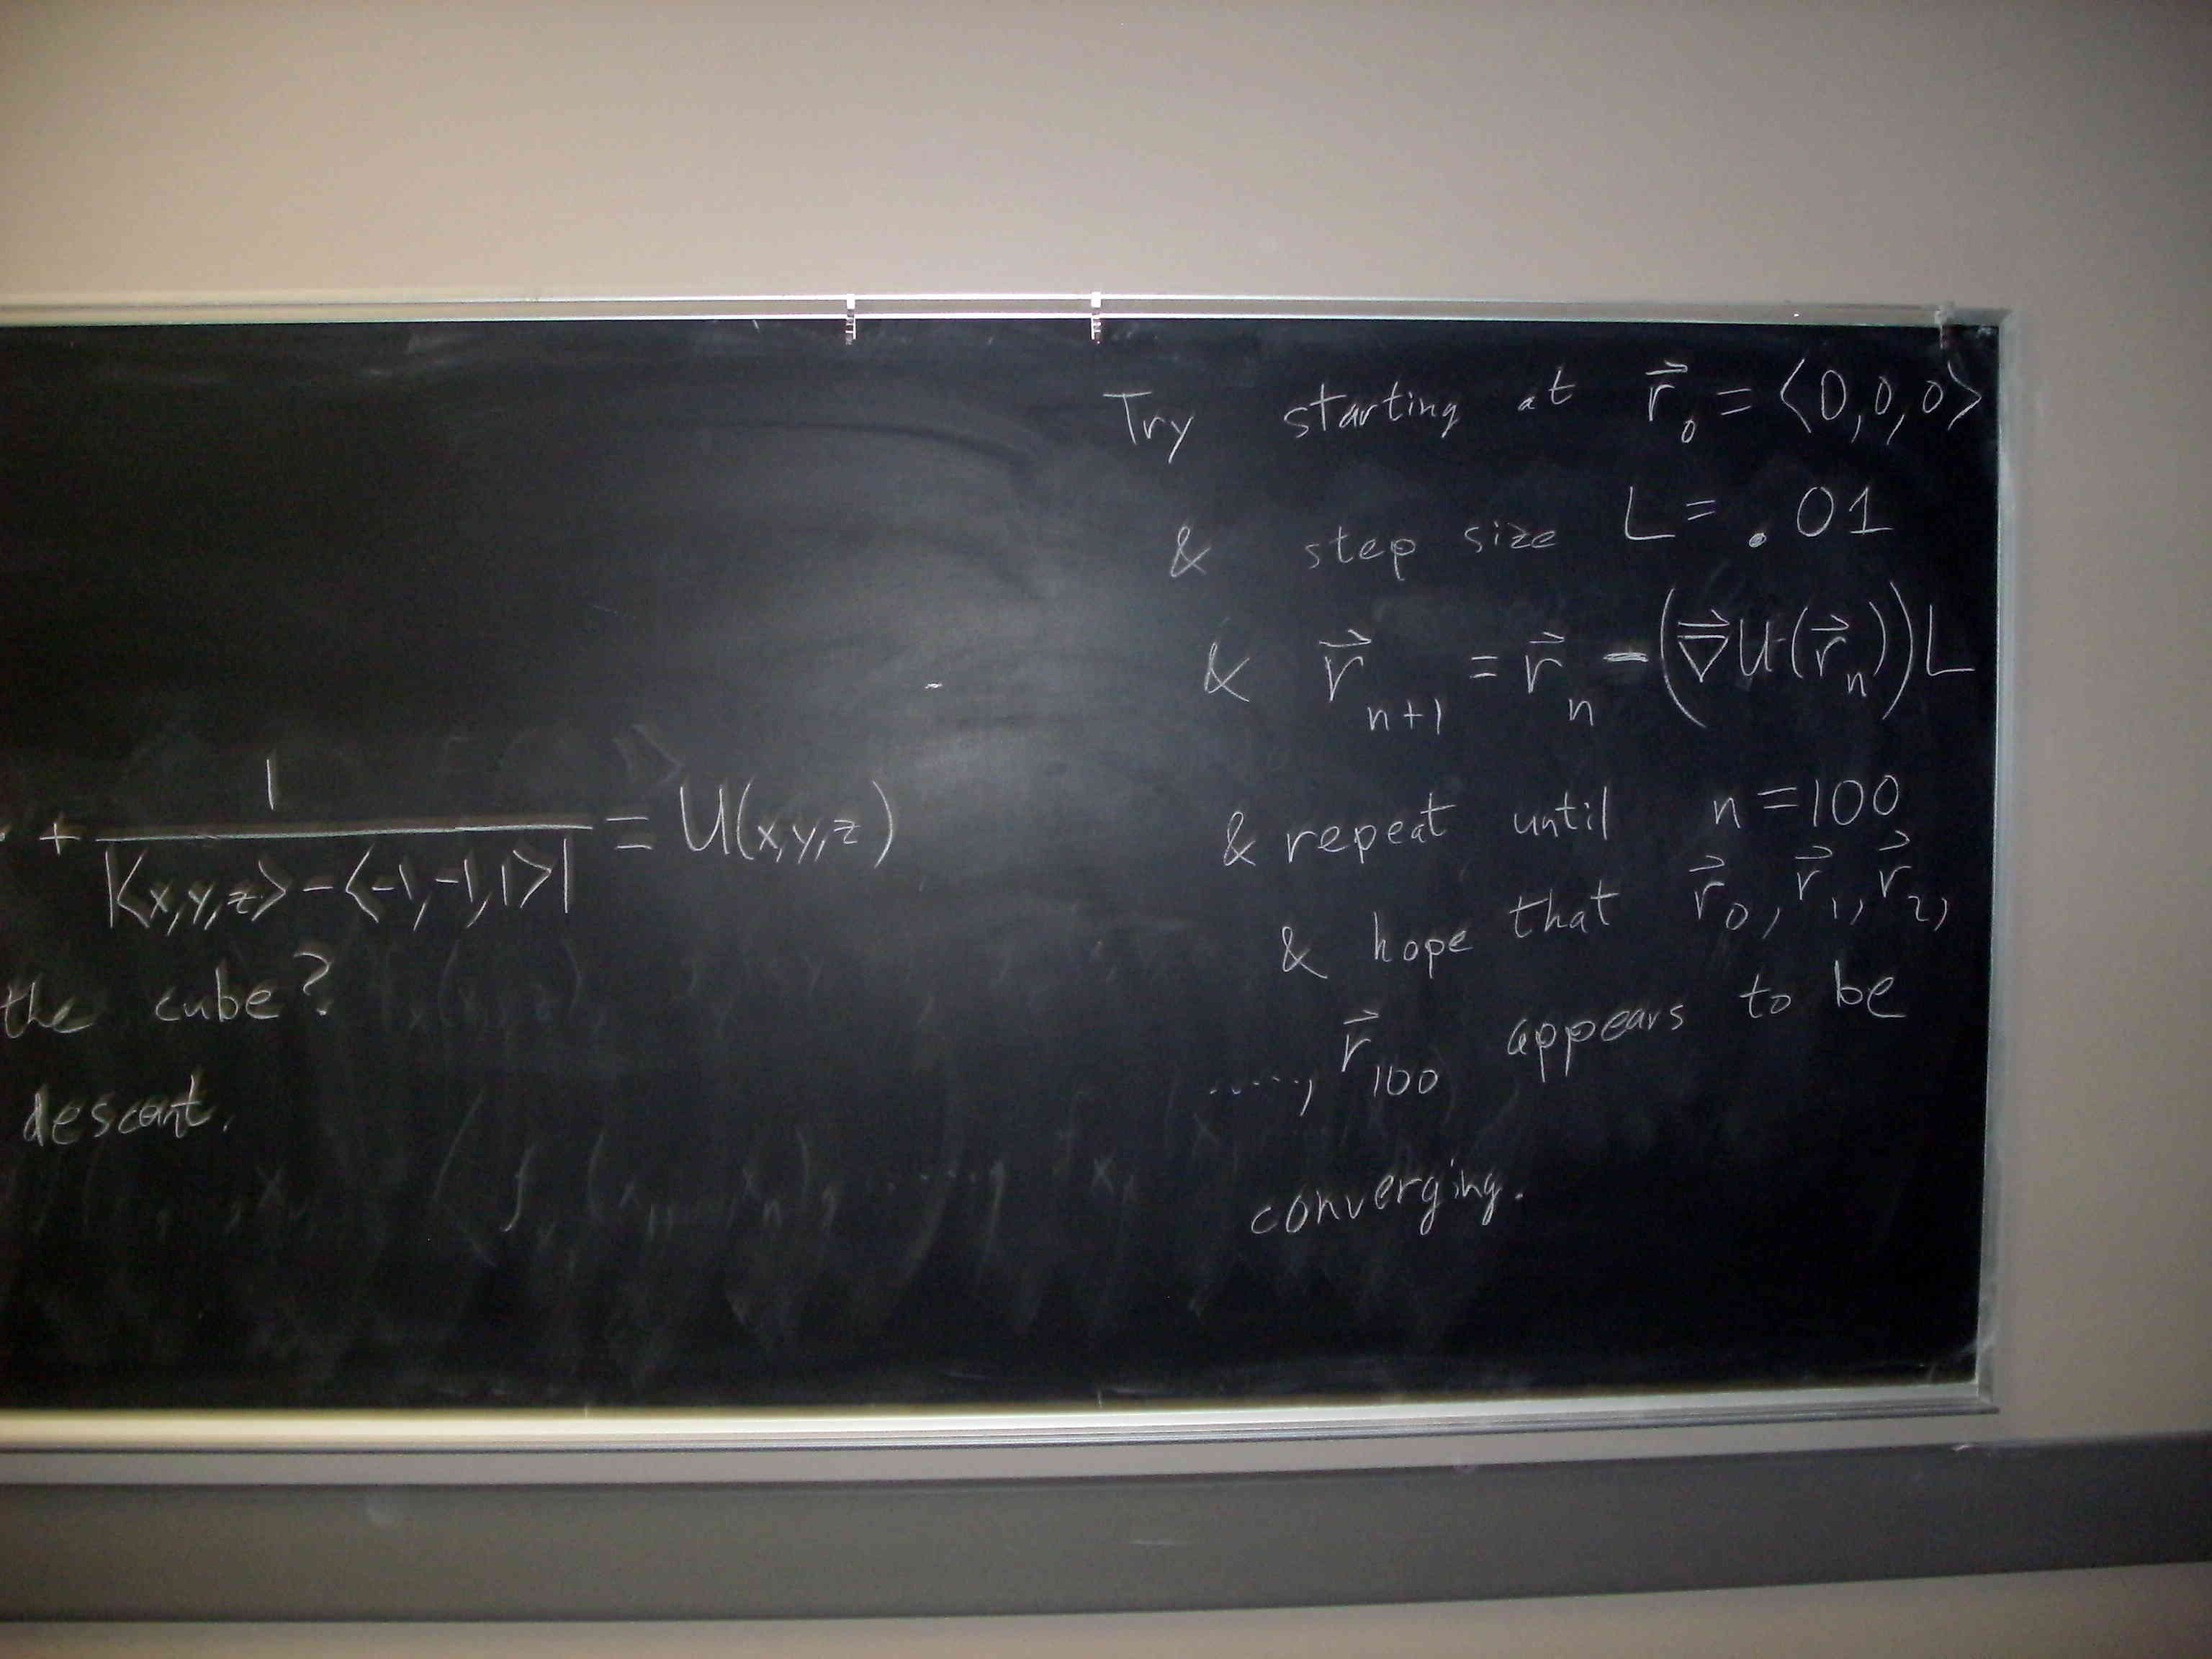 + 1/|<x,y,z> - <-1,-1,1>| = U(x,y,z)
the cube?
descent.
Try starting at r⃗₀ = <0,0,0>
& step size L = .01
& r⃗ₙ₊₁ = r⃗ₙ - (∇⃗U(r⃗ₙ))L
& repeat until n = 100
& hope that r⃗₀, r⃗₁, r⃗₂,
....., r⃗₁₀₀ appears to be
converging.